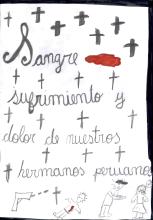 Sangre
sufrimiento y
dolor de nuestros
hermanos peruanos